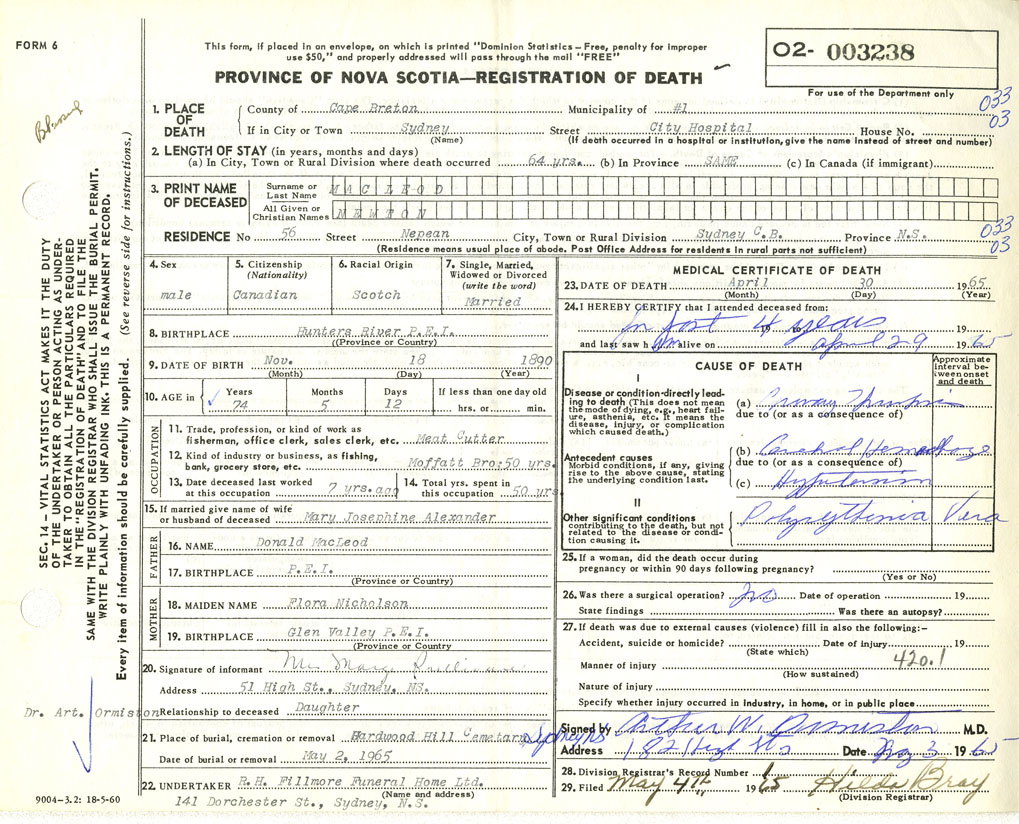 FORM 6
This form, if placed in an envelope, on which is printed "Dominion Statistics – Free, penalty for improper
use $50," and properly addressed will pass through the mail "FREE"
PROVINCE OF NOVA SCOTIA—REGISTRATION OF DEATH
02- 003238
For use of the Department only
033
03
1. PLACE OF DEATH
County of Cape Breton Municipality of #1
If in City or Town Sydney Street City Hospital House No.
(Name) (If death occurred in a hospital or institution, give the name instead of street and number)
2. LENGTH OF STAY (in years, months and days)
(a) In City, Town or Rural Division where death occurred 64 yrs. (b) In Province SAME (c) In Canada (if immigrant)
3. PRINT NAME OF DECEASED
Surname or Last Name MACLEOD
All Given or Christian Names NEWTON
033
03
RESIDENCE No 56 Street Nepean City, Town or Rural Division Sydney C.B. Province N.S.
(Residence means usual place of abode. Post Office Address for residents in rural parts not sufficient)
4. Sex
male
5. Citizenship
(Nationality)
Canadian
6. Racial Origin
Scotch
7. Single, Married,
Widowed or Divorced
(write the word)
Married
8. BIRTHPLACE Hunters River P.E.I.
((Province or Country)
9. DATE OF BIRTH Nov. 18 1890
(Month) (Day) (Year)
10. AGE in
Years Months Days If less than one day old
74 5 12 hrs. or min.
OCCUPATION
11. Trade, profession, or kind of work as
fisherman, office clerk, sales clerk, etc. Meat Cutter
12. Kind of industry or business, as fishing,
bank, grocery store, etc. Moffatt Bro: 50 yrs.
13. Date deceased last worked
at this occupation 7 yrs. ago
14. Total yrs. spent in
this occupation 50 yrs
15. If married give name of wife
or husband of deceased Mary Josephine Alexander
FATHER
16. NAME Donald MacLeod
17. BIRTHPLACE P.E.I.
(Province or Country)
MOTHER
18. MAIDEN NAME Flora Nicholson
19. BIRTHPLACE Glen Valley P.E.I.
(Province or Country
20. Signature of informant Mary
Address 51 High St., Sydney, NS.
Relationship to deceased Daughter
21. Place of burial, cremation or removal Hardwood Hill Cemetary Sydney NS
Date of burial or removal May 2, 1965
22. UNDERTAKER R.H. Fillmore Funeral Home Ltd.
(Name and address)
141 Dorchester St., Sydney, N.S.
MEDICAL CERTIFICATE OF DEATH
23. DATE OF DEATH April 30 1965
(Month) (Day) (Year)
24. I HEREBY CERTIFY that I attended deceased from:
In past 4 years 19
and last saw him alive on april 29 1965
CAUSE OF DEATH
Approximate
interval be-
tween onset
and death
I
Disease or condition directly lead-
ing to death (This does not mean
the mode of dying, e.g., heart fail-
ure, asthenia, etc. It means the
disease, injury, or complication
which caused death.)
(a)
due to (or as a consequence of)
Antecedent causes
Morbid conditions, if any, giving
rise to the above cause, stating
the underlying condition last.
(b) Hemorrhage
due to (or as a consequence of)
(c) Hypertension
II
Other significant conditions
contributing to the death, but not
related to the disease or condi-
tion causing it.
Polycythemia Vera
25. If a woman, did the death occur during
pregnancy or within 90 days following pregnancy?
(Yes or No)
26. Was there a surgical operation? no Date of operation 19
State findings Was there an autopsy?
27. If death was due to external causes (violence) fill in also the following:–
Accident, suicide or homicide? Date of injury 19
(State which)
420.1
Manner of injury
(How sustained)
Nature of injury
Specify whether injury occurred in industry, in home, or in public place
Signed by Arthur W. Ormiston M.D.
Address 182 High St Date May 3 1965
28. Division Registrar's Record Number
29. Filed May 4th 1965 Hilda Bray
(Division Registrar)
SEC. 14 – VITAL STATISTICS ACT MAKES IT THE DUTY
OF THE UNDERTAKER OR PERSON ACTING AS UNDER-
TAKER TO OBTAIN ALL THE PARTICULARS REQUIRED
IN THE "REGISTRATION OF DEATH" AND TO FILE THE
SAME WITH THE DIVISION REGISTRAR WHO SHALL ISSUE THE BURIAL PERMIT.
WRITE PLAINLY WITH UNFADING INK. THIS IS A PERMANENT RECORD.
Every item of information should be carefully supplied. (See reverse side for instructions.)
Dr. Art. Ormiston
9004–3.2: 18-5-60